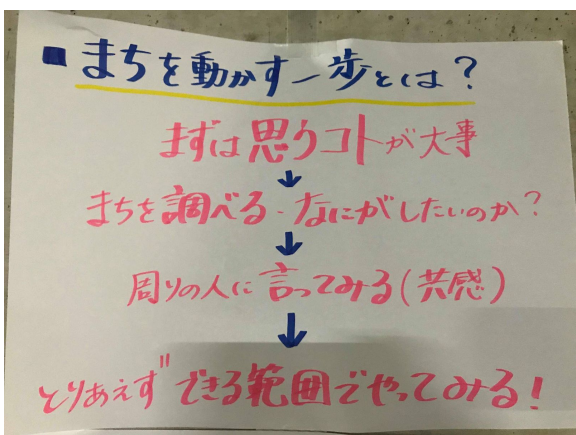 ■まちを動かす一歩とは？
まずは思うコトが大事
↓
まちを調べる・なにがしたいのか？
↓
周りの人に言ってみる(共感)
↓
とりあえず"できる範囲でやってみる！